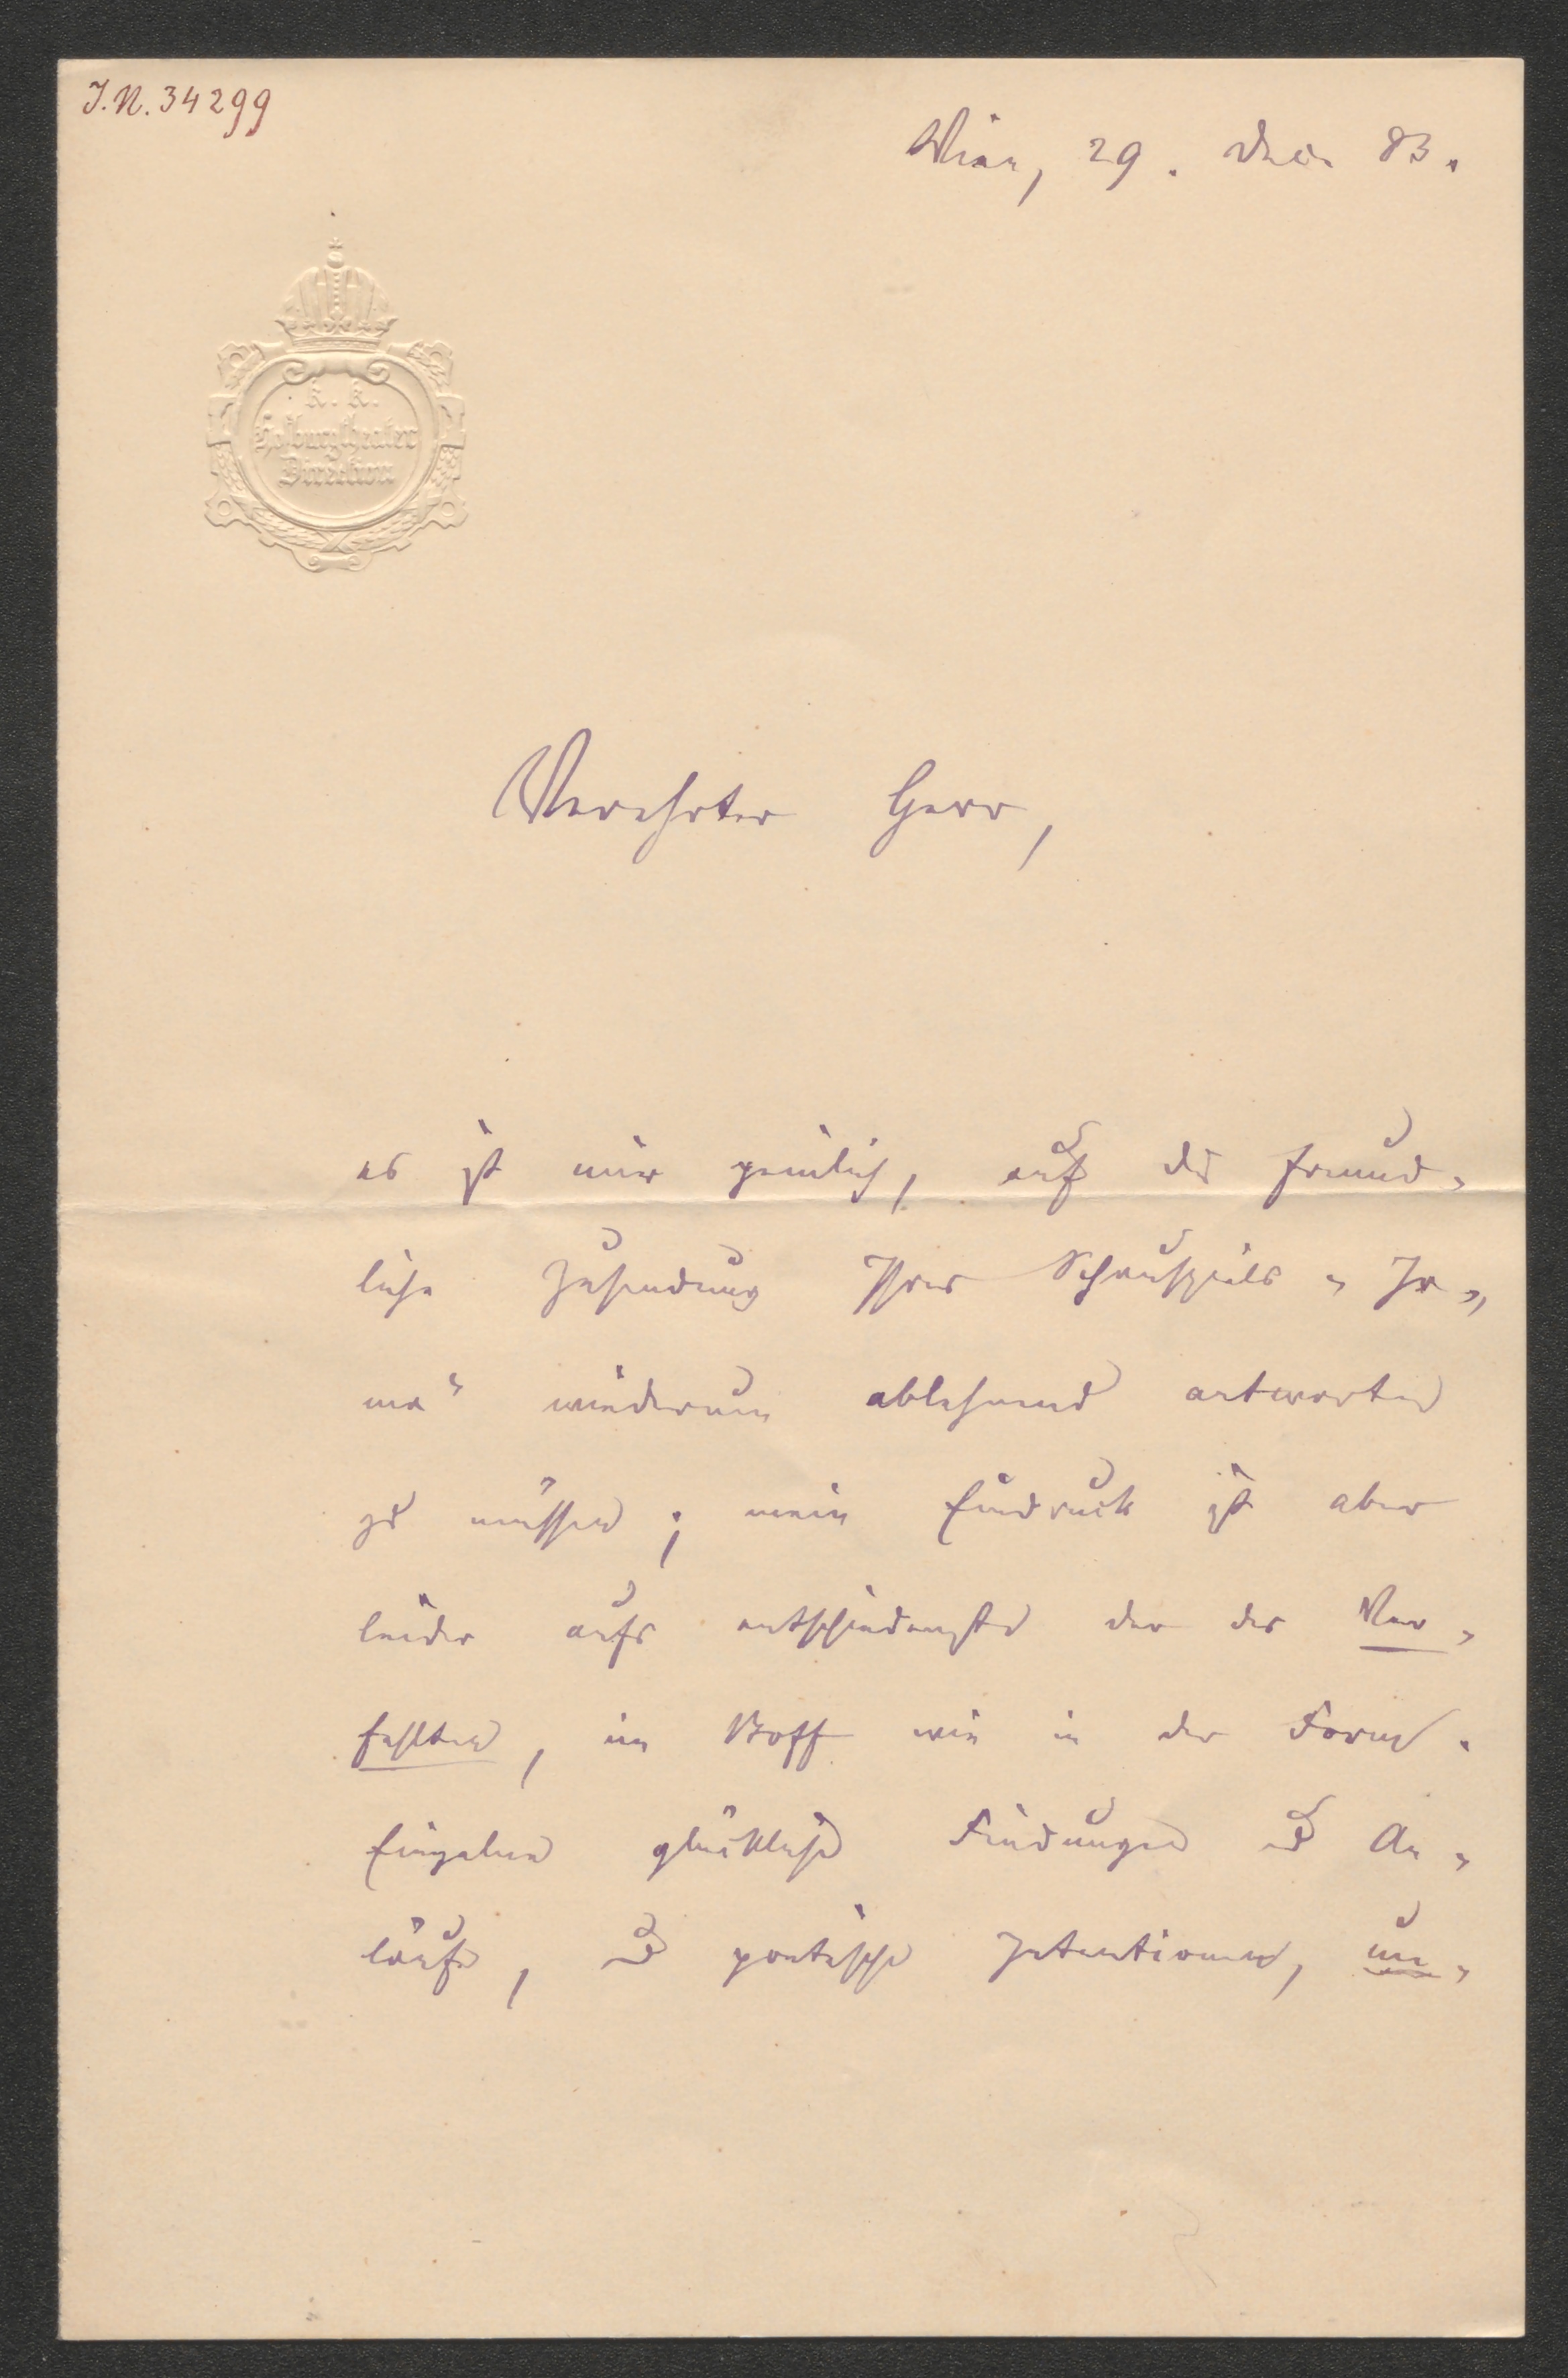 J.N. 34299
Wien, 29. Dec. 83.
k. k.
Hofburgtheater
Direction
Verehrter Herr,
es ist mir peinlich, auf die freund-
liche Zusendung Ihres Schauspiels „Ir-
ma“ wiederum ablehnend antworten
zu müssen; mein Eindruck ist aber
leider aufs entschiedenste der des Ver-
fehlten, im Stoff wie in der Form.
Einzelne glückliche Findungen u An-
läufe, u poetische Intentionen, un-